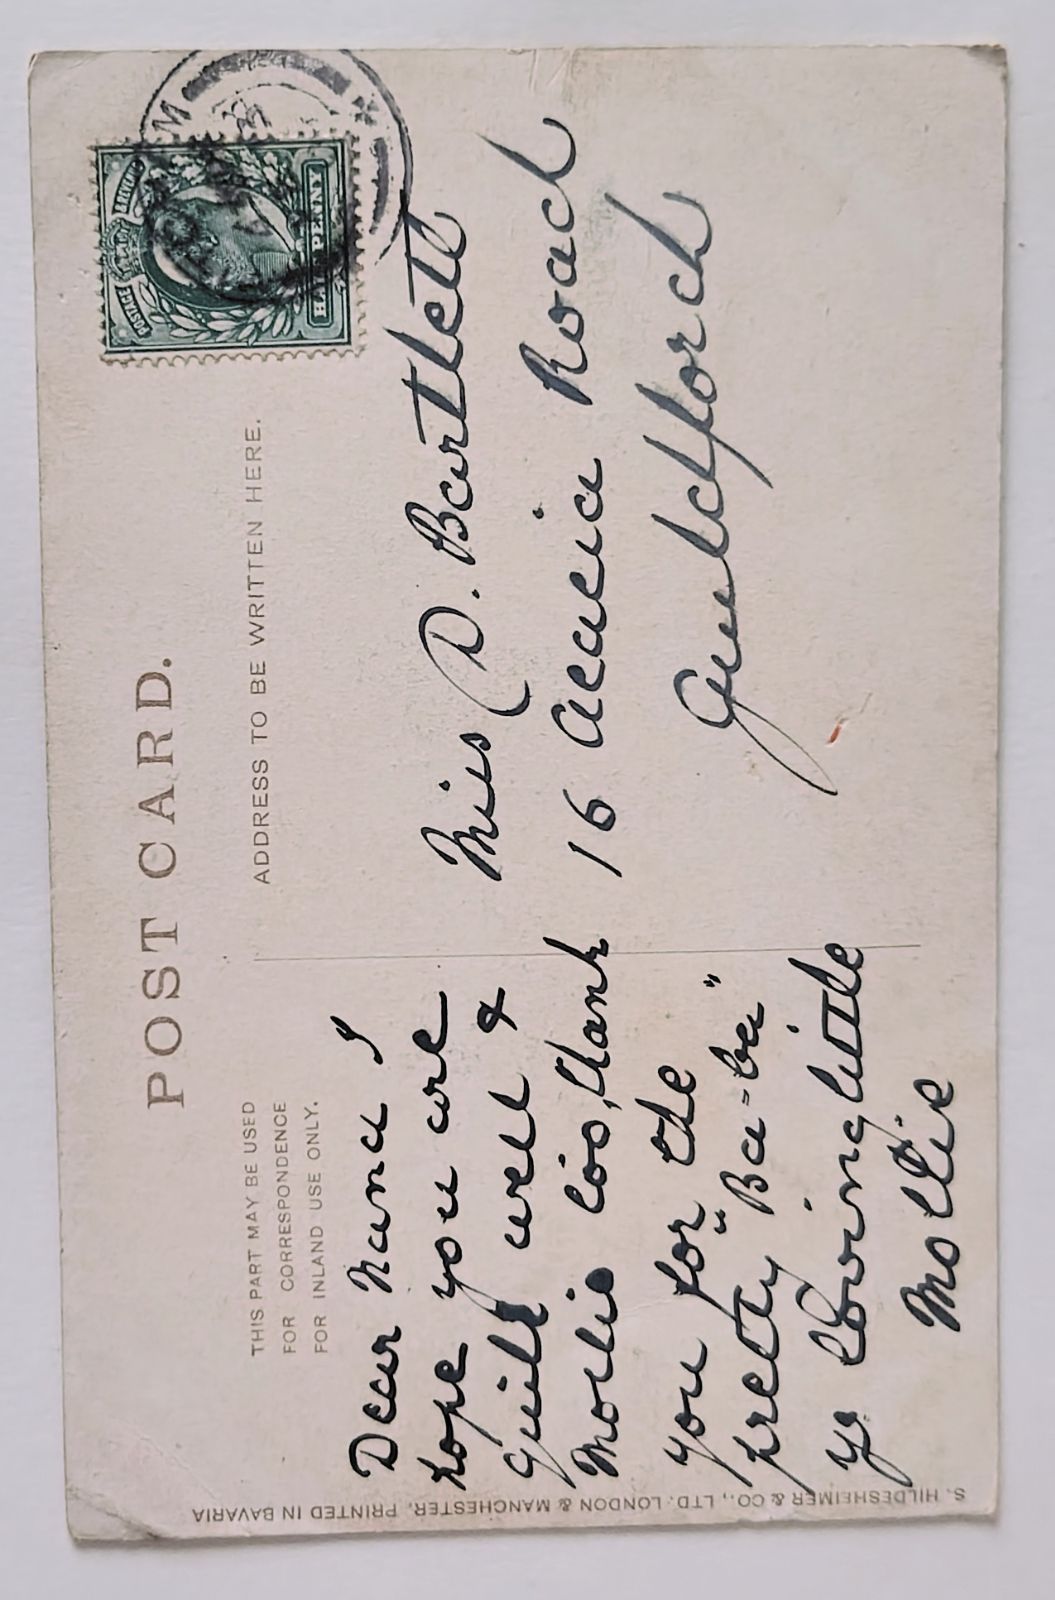 POST CARD.
THIS PART MAY BE USED
FOR CORRESPONDENCE
FOR INLAND USE ONLY.
ADDRESS TO BE WRITTEN HERE.
POSTAGE REVENUE
HALFPENNY
Dear Nana I
hope you are
quite well &
Mollie is, thank
you for the
pretty "Ba-ba"
yr loving little
Mollie
Miss D. Bartlett
16 Acacia Road
Guildford
S. HILDESHEIMER & CO., LTD. LONDON & MANCHESTER. PRINTED IN BAVARIA